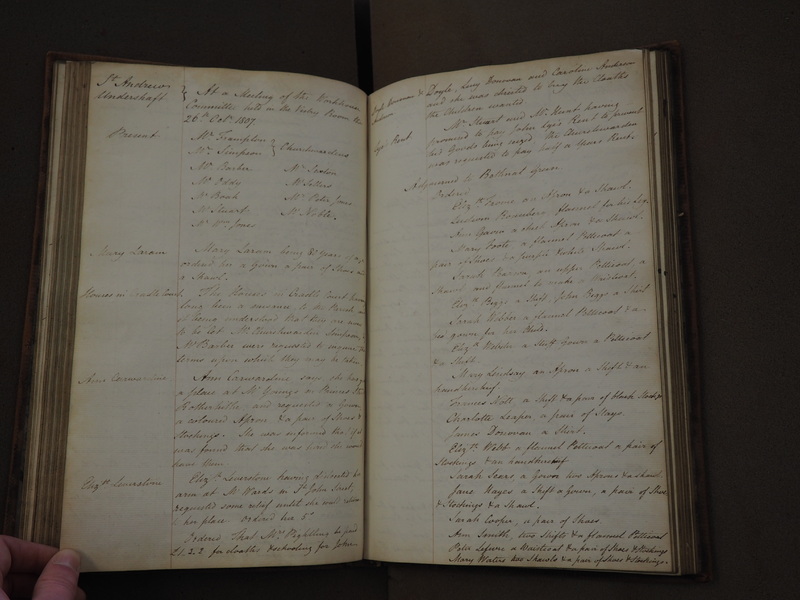 St Andrew
Undershaft
At a Meeting of the Workhouse
Committee held in the Vestry Room the
26th Octr 1807
Present
Mr Frampton
Mr Simpson } Churchwardens
Mr Barber Mr Sexton
Mr Oddy Mr Sellers
Mr Boak Mr Peter Jones
Mr Stuart Mr Noble
Mr Wm Jones
Mary Laram
Mary Laram being
ordered her a Gown a pair of Shoes and
a Shawl.
Houses in Cradle Court
The Houses in Cradle Court having
long been a nuisance to the Parish and
it being understood that they are now
to be let Mr Churchwarden Simpson &
Mr Barber were requested to enquire the
terms upon which they may be taken
Ann Carwardine
Ann Carwardine says she has got
a place at Mr Youngs in Princes Street
Rotherhithe and requests a Gown
a coloured Apron & a pair of Shoes &
Stockings. She was informed that if it
was found that she was hired she would
have them
Elizth Leverstone
Elizth Leverstone having
arm at Mr Wards in St John Street
requested some relief until she could return
to her place ordered her 5s
Ordered That Mrs Nightley be paid
£1.2.2 for cloaths & schooling for John
Doyle, Lucy Newman and Caroline Andrew
and she was directed to buy the Cloaths
the Children wanted
Lye's Rent
Mr Stuart and Mr Hunt having
promised to pay John Lye's Rent to prevent
his Goods being seized the Churchwarden
was requested to pay half a Years Rent.
Adjourned to Bethnal Green
Ordered
Elizth an Apron & a Shawl
flannel for his leg
Ann a check Apron & a Shawl
Mary Coote a flannel Petticoat a
pair of Shoes & a purple & white Shawl
Sarah Pearson an upper Petticoat, a
Shawl and flannel to make a Waistcoat
Elizth Beggs a Shift, John Beggs a Shirt
Sarah Webber a flannel Petticoat & a
gown for her Child.
Elizth Webster a Stuff Gown a Petticoat
& a Shift
Mary Lindsay, an Apron a Shift & an
handkerchief
Frances Holt, a Shift & a pair of black Stockgs
Charlotte Leaper, a pair of Stays
James Donovan a Shirt.
Elizth Webb a flannel Petticoat a pair of
Stockings & an handkerchief
Sarah Sears, a Gown two Aprons & a shawl
Jane Hayes a Shift a Gown, a pair of Shoes
& Stockings & a Shawl.
Sarah Cooper, a pair of Shoes
Ann Smith, two Shifts & a flannel Petticoat
Peter Lefevre a Waistcoat & a pair of Shoes & Stockings
Mary Waters two Shawls & a pair of Shoes & Stockings.